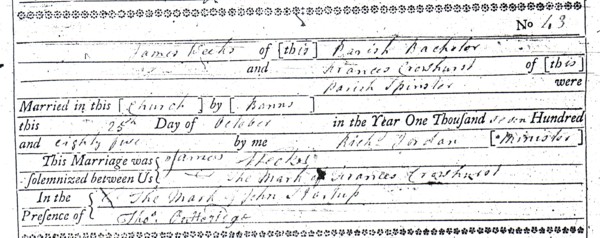 No 43
James Weeks of [this] Parish Bachelor
and Frances Crowhurst of [this]
Parish Spinster were
Married in this [Church] by [Banns]
this 25th Day of October in the Year One Thousand seven Hundred
and eighty five by me Richd Jordan [Minister]
This Marriage was James Weekes
solemnized between Us The Mark of Frances Crowhurst
In the The Mark of John Startup
Presence of Thos